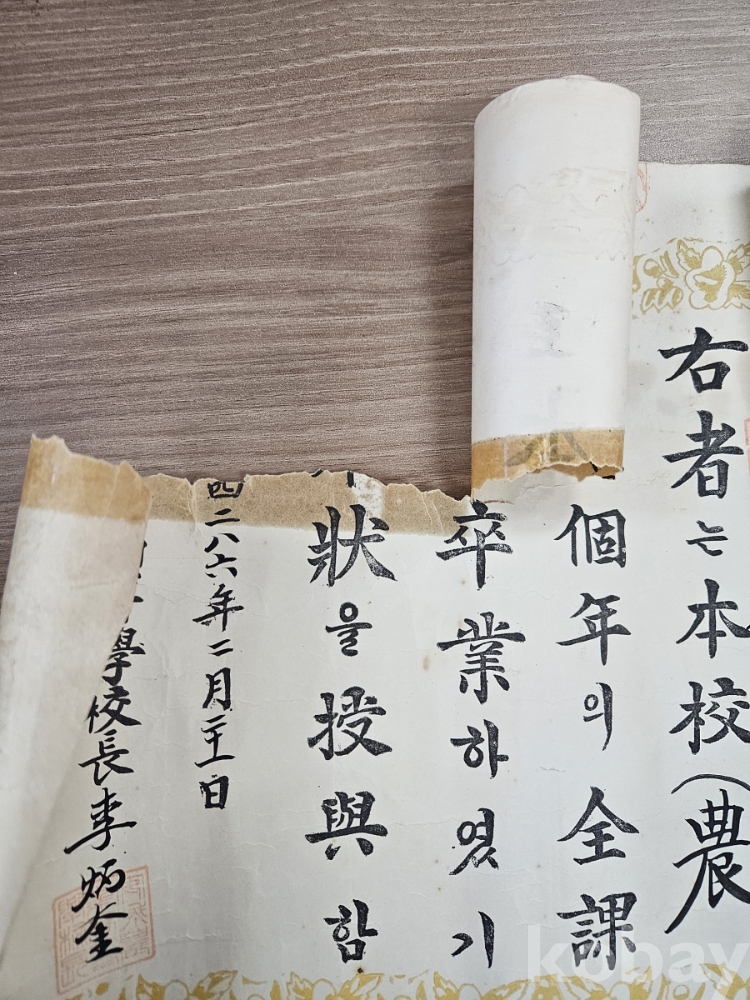 右者는本校(農
個年의全課
卒業하였기
狀을授與함
四二八六年二月二十一日
學校長李炳奎
kobay